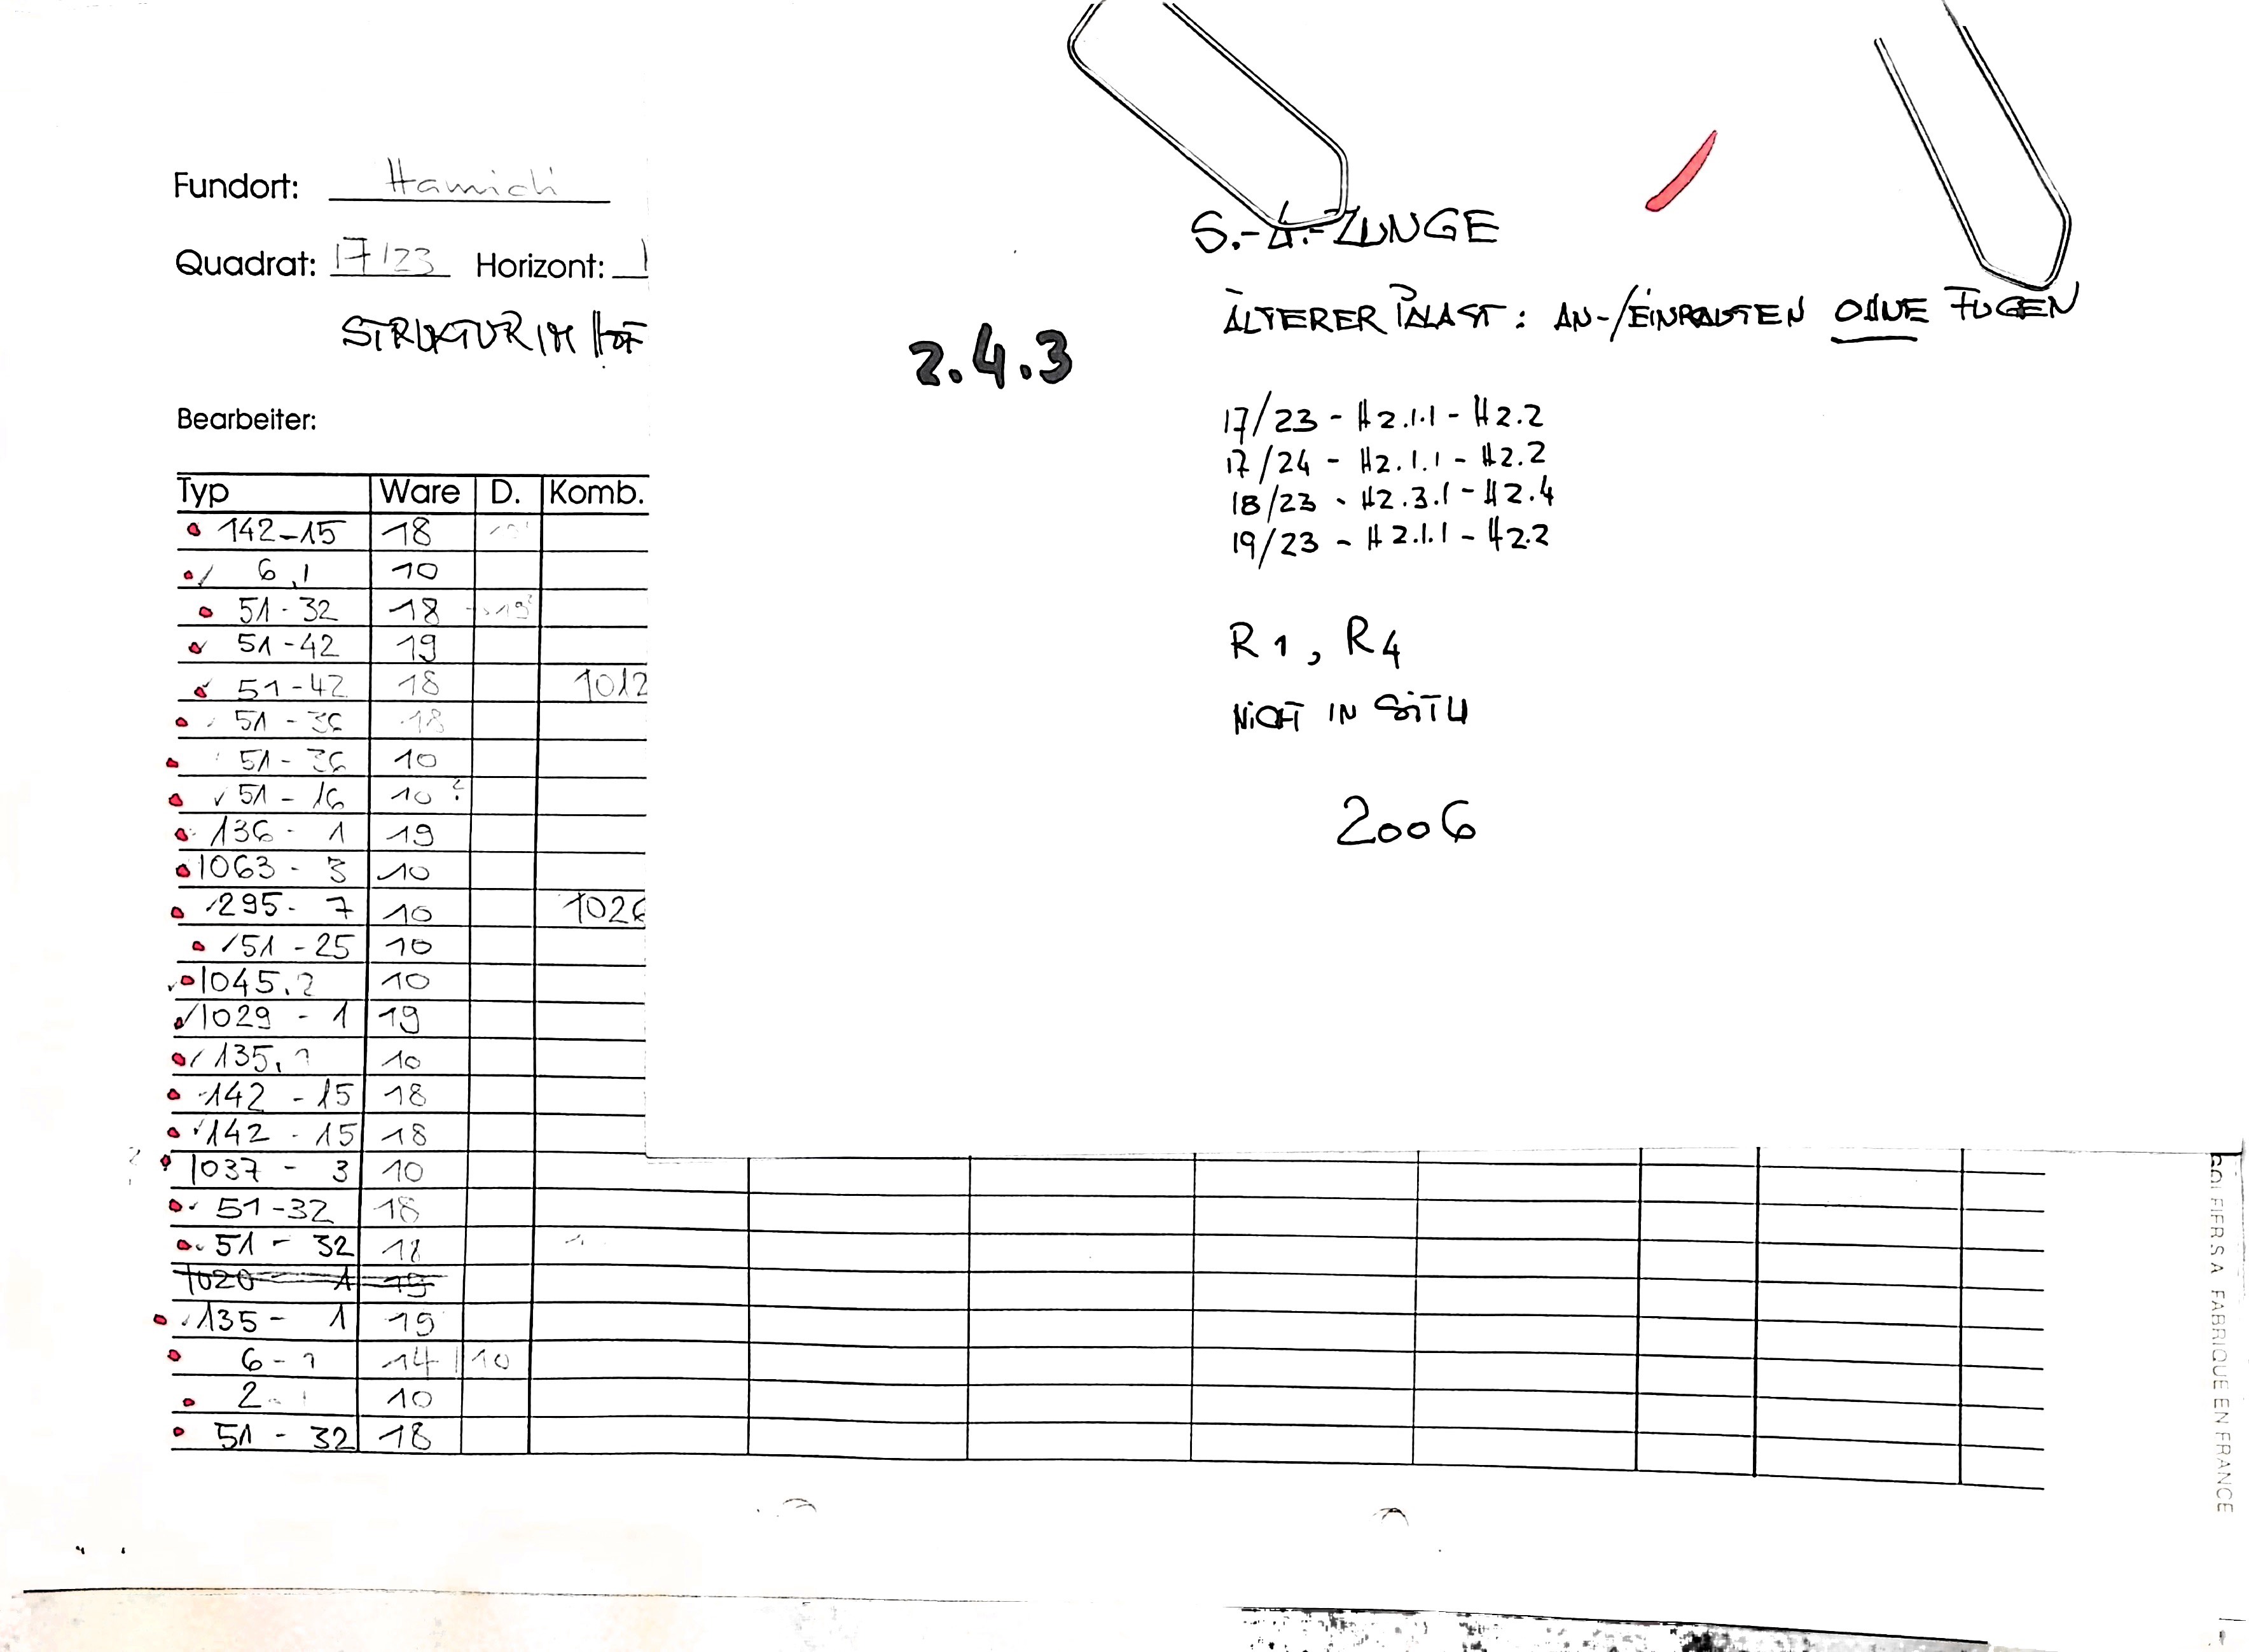 Fundort: Hamidi
Quadrat: 17/23 Horizont: 1
STRUKTUR IM HOF
Bearbeiter:
Typ Ware D. Komb.
142-15 18
6,1 10
51-32 18 19?
51-42 19
51-42 18 1012
51-36 18
51-36 10
51-16 10?
136-1 19
1063-3 10
295-7 10 1026
51-25 10
1045.2 10
1029-1 19
135, 10
142-15 18
142-15 18
1037-3 10
51-32 18
51-32 18
1020 1 19
135-1 19
6-1 14 10
2- 10
51-32 18
2.4.3
S.-Ö.-ZUNGE
ÄLTERER PALAST: AN-/EINBAUTEN OHNE FUGEN
17/23 - H2.1.1 - H2.2
17/24 - H2.1.1 - H2.2
18/23 - H2.3.1 - H2.4
19/23 - H2.1.1 - H2.2
R1, R4
NICHT IN SITU
2006
FABRIQUE EN FRANCE